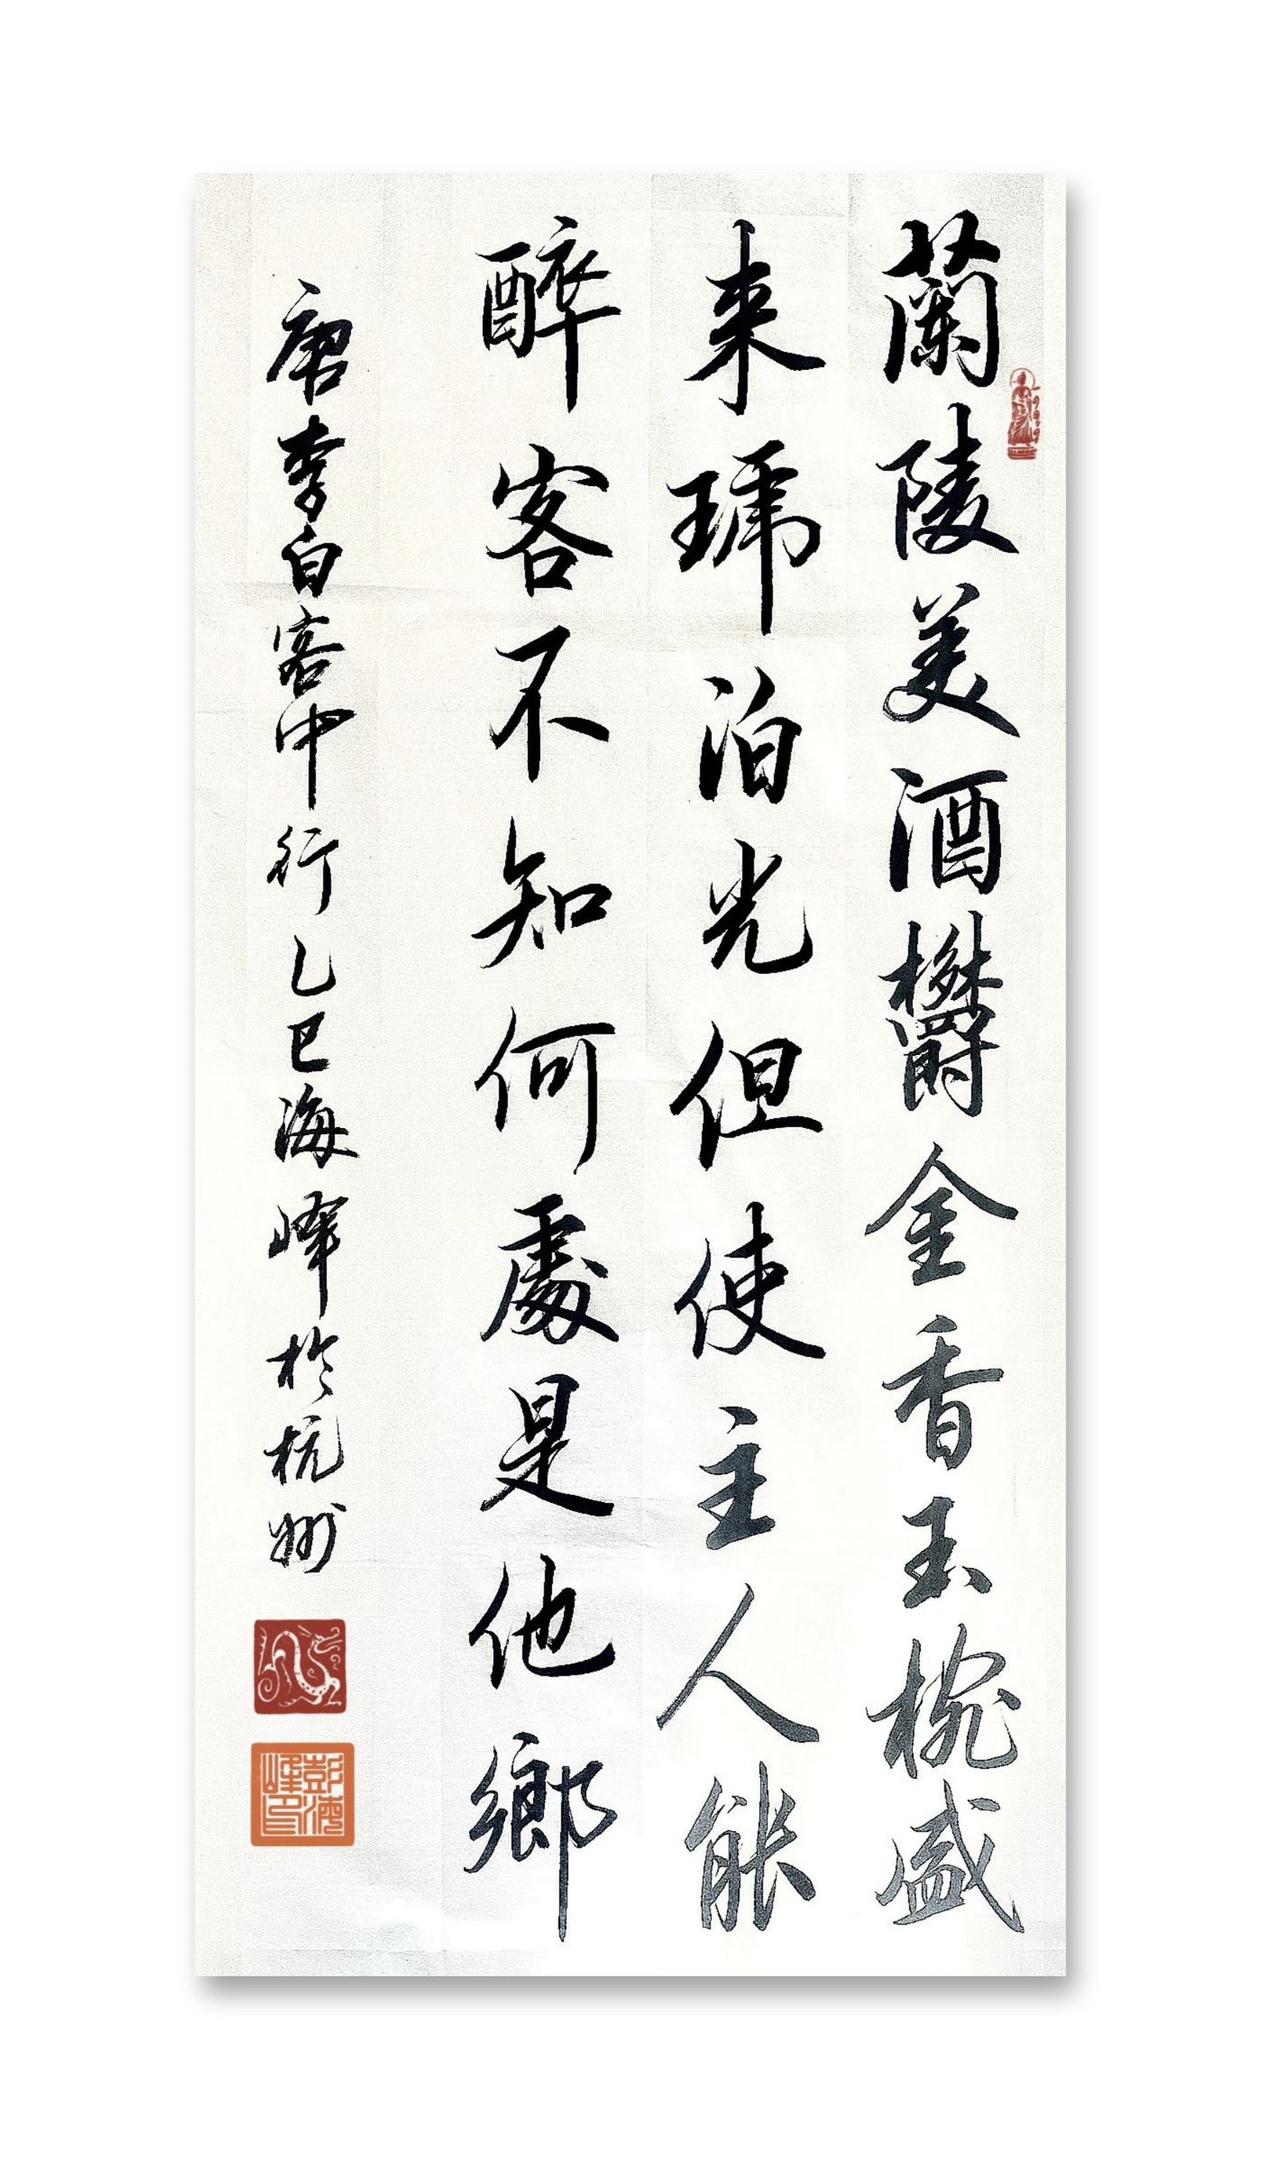 蘭陵美酒欝金香玉椀盛
来琥泊光但使主人能
醉客不知何處是他鄉
唐李白客中行乙巳海峰於杭州
彭海峰印